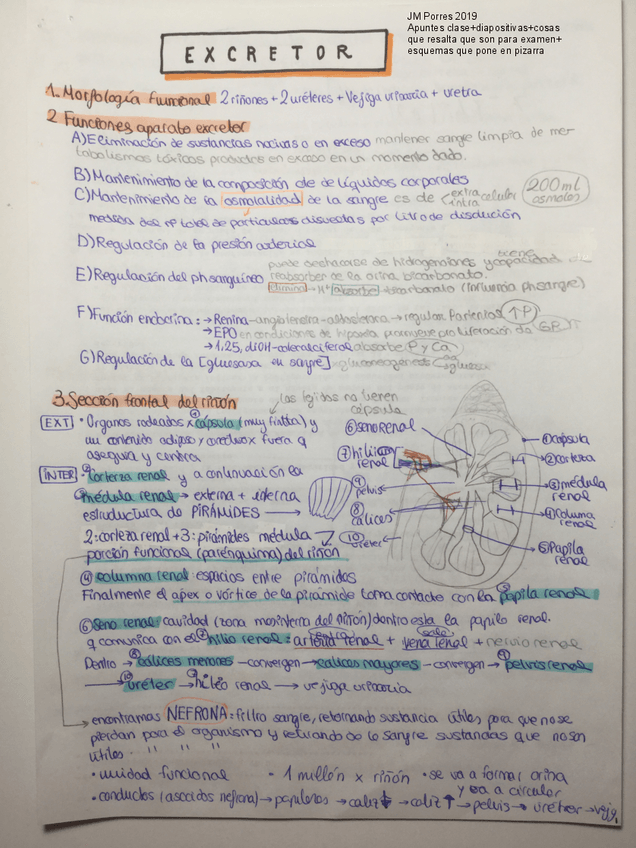 JM Porres 2019
Apuntes clase+diapositivas+cosas
que resalta que son para examen+
esquemas que pone en pizarra
EXCRETOR
1. Morfología funcional 2 riñones + 2 uréteres + Vejiga urinaria + uretra
2 Funciones aparato excretor
A) Eliminación de sustancias nocivas o en exceso mantener sangre limpia de me-
tabolismos tóxicos productos en exceso en un momento dado.
B) Mantenimiento de la composición de líquidos corporales
C) Mantenimiento de la osmolalidad de la sangre es de extra intra celular
200 ml osmoles
medida del nº total de partículas disueltas por litro de disolución
D) Regulación de la presión arterial
puede deshacerse de hidrogeniones y tiene capacidad de
E) Regulación del ph sanguíneo reabsorber de la orina bicarbonato.
elimina → H⁺ absorbe → bicarbonato (influencia ph sangre)
F) Función endocrina: → Renina-angiotensina-aldosterona → regular P arterial ↑P
→ EPO en condiciones de hipoxia promueve proliferación de GR
→ 1,25, diOH-colecalciferol absorbe P y Ca
G) Regulación de la [glucosa en sangre] gluconeogénesis aa glucosa
3. Sección frontal del riñón
las ligidas no tienen
cápsula
EXT · Organos rodeados x cápsula (muy fibrótica) y
un contenido adiposo y conectivo x fuera q
asegura y centra
INTER · Corteza renal y a continuación la
médula renal → externa + interna
estructura de PIRÁMIDES
2: corteza renal + 3: pirámides médula
porción funcional (parénquima) del riñón
⑥ seno renal
⑦ hilio renal
⑨ pelvis
⑧ cálices
⑩ uréter
① cápsula
② corteza
③ médula renal
④ columna renal
⑤ Papila renal
④ columna renal: espacios entre pirámides
Finalmente el apex o vértice de la pirámide toma contacto con la papila renal
⑥ seno renal: cavidad (zona más interna del riñón) dentro esta la papila renal.
q comunica con el hilio renal: arteria renal + vena renal + nervio renal
entra sale
Dentro → cálices menores - convergen → cálices mayores - convergen → pelvis renal
→ uréter → hilio renal → vejiga urinaria
encontramos NEFRONA = filtro sangre, retornando sustancia útiles para que no se
pierdan para el organismo y retirando de la sangre sustancias que no son
útiles. " " "
· unidad funcional · 1 millón x riñón · se va a formar orina
y va a circular
· conductos (asociados nefrona) → papilares → caliz ↓ → caliz ↑ → pelvis → uréter → vejg.